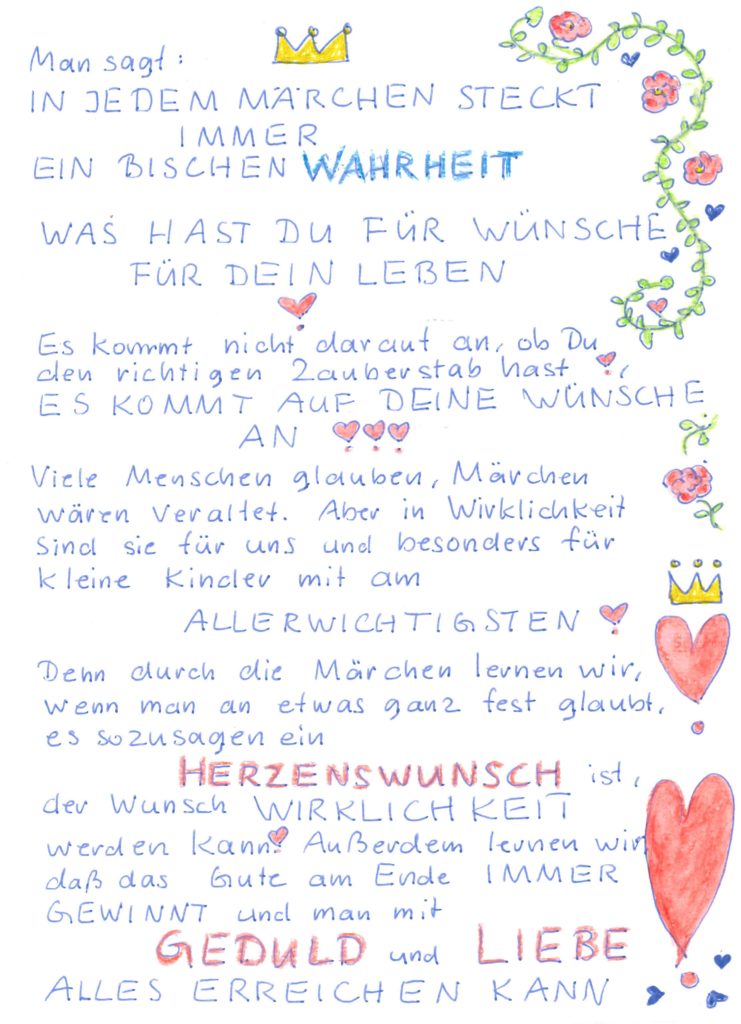 Man sagt:
IN JEDEM MÄRCHEN STECKT
IMMER
EIN BISCHEN WAHRHEIT
WAS HAST DU FÜR WÜNSCHE
FÜR DEIN LEBEN
Es kommt nicht darauf an, ob Du
den richtigen Zauberstab hast!,
ES KOMMT AUF DEINE WÜNSCHE
AN !!!
Viele Menschen glauben, Märchen
wären veraltet. Aber in Wirklichkeit
sind sie für uns und besonders für
kleine Kinder mit am
ALLERWICHTIGSTEN !
Denn durch die Märchen lernen wir,
wenn man an etwas ganz fest glaubt,
es sozusagen ein
HERZENSWUNSCH ist,
der Wunsch WIRKLICHKEIT
werden kann! Außerdem lernen wir,
daß das Gute am Ende IMMER
GEWINNT und man mit
GEDULD und LIEBE
ALLES ERREICHEN KANN